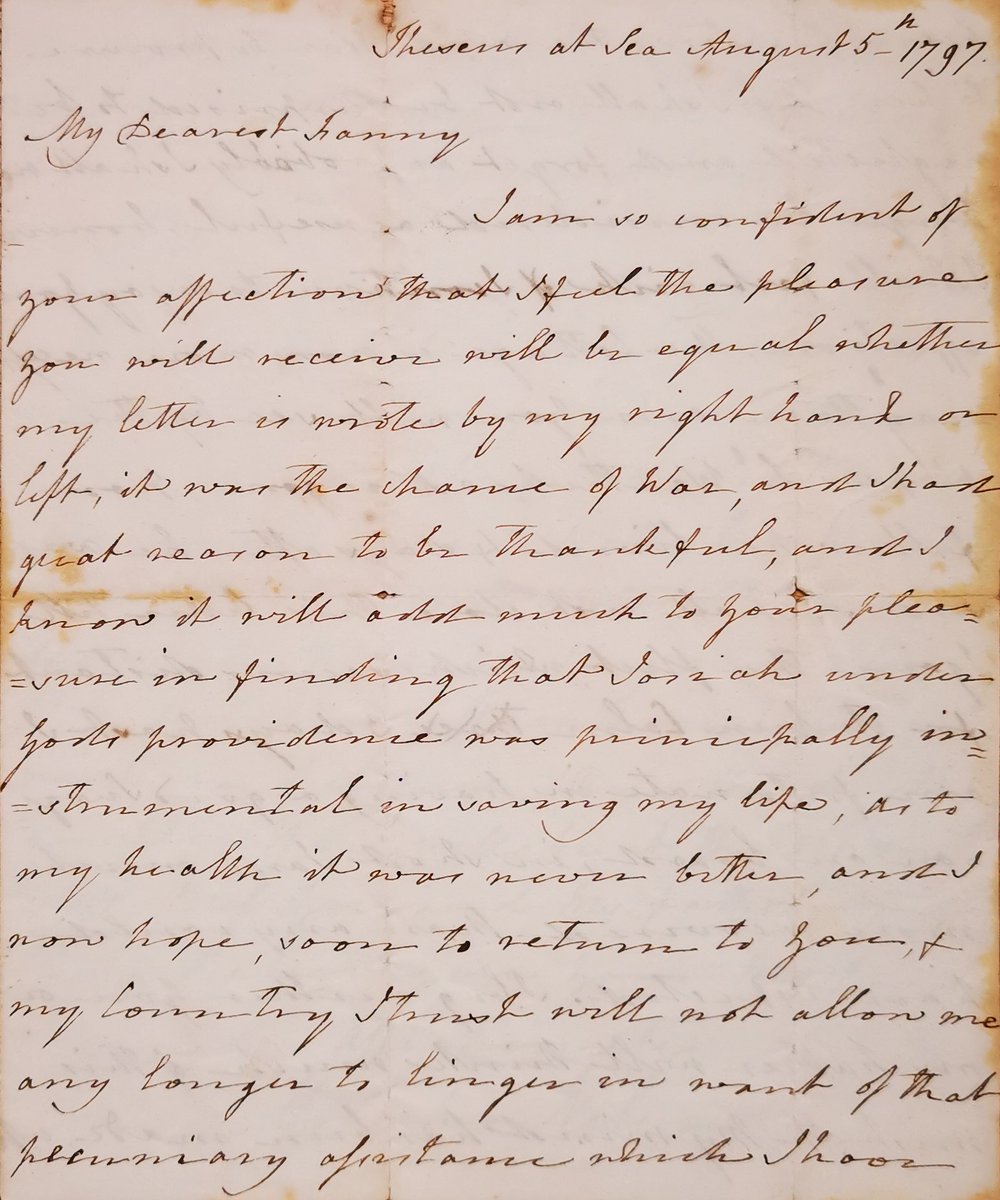 Theseus at Sea August 5th 1797.
My Dearest Fanny
I am so confident of
your affection that I feel the pleasure
you will receive will be equal whether
my letter is wrote by my right hand or
left, it was the chance of War, and I had
great reason to be thankful, and I
know it will add much to your plea=
=sure in finding that Josiah under
Gods providence was principally in=
=strumental in saving my life, as to
my health it was never better, and I
now hope, soon to return to you, &
my Country I trust will not allow me
any longer to linger in want of that
pecuniary assistance which I have